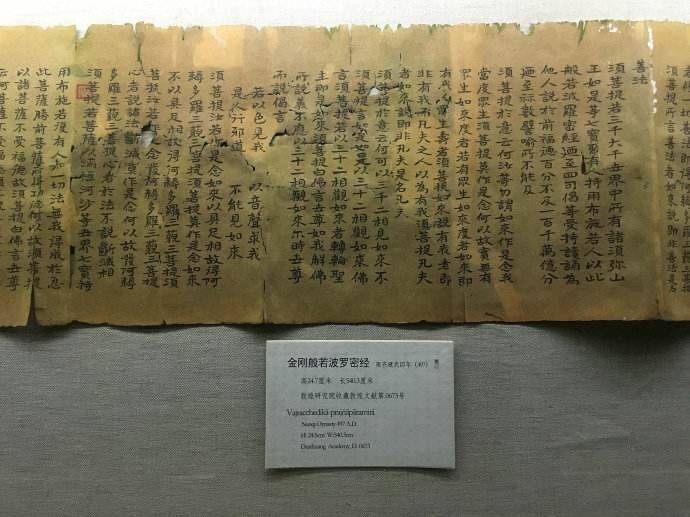 善法
須菩提若三千大千世界中所有諸須弥山
王如是等七寶聚有人持用布施若人以此
般若波羅蜜經乃至四句偈等受持讀誦為
他人說於前福德百分不及一百千萬億分
乃至筭數譬喻所不能及
須菩提於意云何汝等勿謂如來作是念我
當度眾生須菩提莫作是念何以故實无有
眾生如來度者若有眾生如來度者如來即
有我人眾生壽者須菩提如來說有我者即
非有我而凡夫之人以為有我須菩提凡夫
者如來說即非凡夫是名凡夫
須菩提於意云何可以三十二相見如來不
須菩提言如是如是以三十二相觀如來佛
言須菩提若以三十二相觀如來者轉輪聖
王即是如來須菩提白佛言世尊如我解佛
所說義不應以三十二相觀如來尔時世尊
而說偈言
若以色見我 以音聲求我
是人行邪道 不能見如來
須菩提汝若作是念如來以具足相故得阿
耨多羅三藐三菩提須菩提莫作是念如來
不以具足相故得阿耨多羅三藐三菩提須
菩提汝若作是念發阿耨多羅三藐三菩提
心者說諸法斷滅莫作是念何以故發阿耨
多羅三藐三菩提心者於法不說斷滅相
須菩提若菩薩以滿恒河沙等世界七寶持
用布施若復有人知一切法無我得成於忍
此菩薩勝前菩薩所得功德何以故須菩提
以諸菩薩不受福德故須菩提白佛言世尊
云何菩薩不受福德
金刚般若波罗密经 南齐建武四年（497）
高24.7厘米 长540.3厘米
敦煌研究院收藏敦煌文献第0673号
Vajracchedikā-prajñāpāramitā
Nanqi Dynasty 497 A.D.
Dunhuang Academy, D. 0673